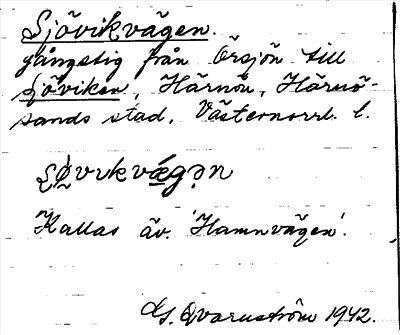 Sjövikvägen.
gångstig från Örsjön till
Sjöviken, Härnön, Härnö-
sands stad, Västernorrl. l.
Kallas äv. 'Hamnvägen'.
G. Qvarnström 1942.